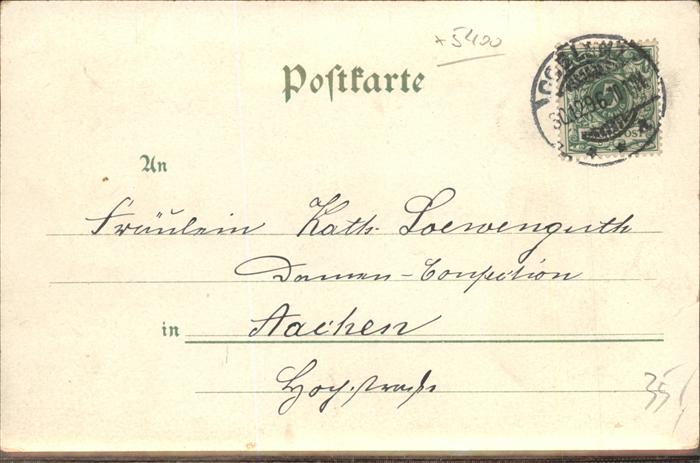 x 5400
Postkarte
An
Fräulein Kath. Loewenguth
Damen-Confection
in Aachen
Hochstrasse
35